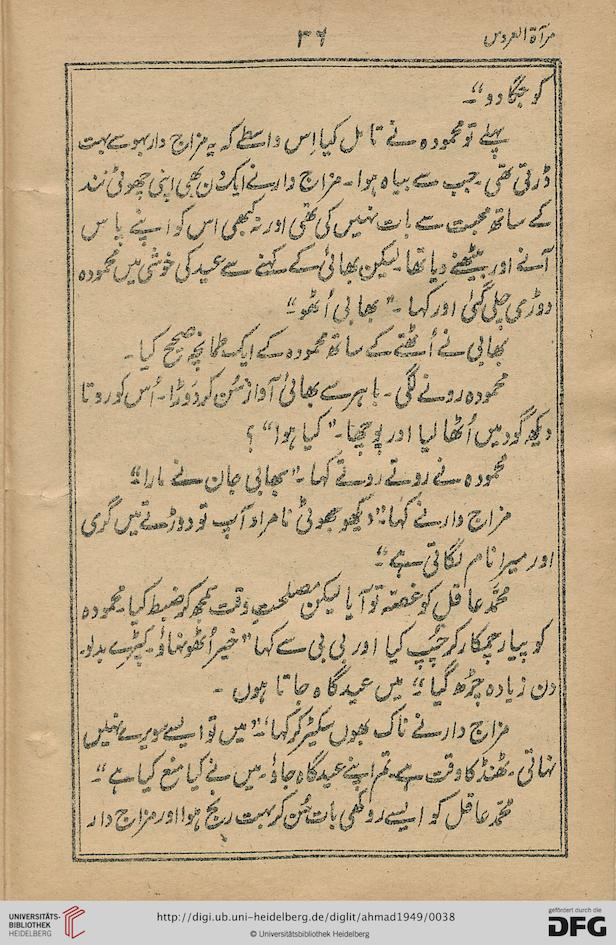 مرآۃ العروس
۳۶
کو جگا دو"۔
پہلے تو محمودہ نے تامل کیا اِس واسطے کہ یہ مزاج دار بہو سے بہت
ڈرتی تھی۔ جب سے بیاہ ہوا۔ مزاج دار نے ایک دن بھی اپنی چھوٹی نند
کے ساتھ محبت سے بات نہیں کی تھی اور نہ کبھی اس کو اپنے پاس
آنے اور بیٹھنے دیا تھا۔ لیکن بھائی کے کہنے سے عید کی خوشی میں محمودہ
دوڑی چلی گئی اور کہا۔ "بھابی اُٹھو"۔
بھابی نے اُٹھتے کے ساتھ محمودہ کے ایک طمانچہ صحیح کیا۔
محمودہ رونے لگی۔ باہر سے بھائی آواز سُن کر دَوڑا۔ اُس کو روتا
دیکھ گود میں اُٹھا لیا اور پوچھا۔ "کیا ہوا"؟
محمودہ نے روتے روتے کہا۔ "بھابی جان نے مارا"۔
مزاج دار نے کہا۔ "دیکھو جھوٹی نامراد آپ تو دوڑتے میں گری
اور میرا نام لگاتی ہے"۔
محمّد عاقل کو غصّہ تو آیا لیکن مصلحتِ وقت سمجھ کر ضبط کیا۔ محمودہ
کو پیار چمکار کر چُپ کیا اور بی بی سے کہا "خیر اُٹھو نہاؤ۔ کپڑے بدلو۔
دن زیادہ چڑھ گیا"۔ میں عیدگاہ جاتا ہوں۔
مزاج دار نے ناک بھوں سکیڑ کر کہا۔ "میں تو ایسے سویرے نہیں
نہاتی۔ ٹھنڈ کا وقت ہے۔ تم اپنے عیدگاہ جاؤ۔ میں نے کیا منع کیا ہے"۔
محمّد عاقل کو ایسے روکھی بات سُن کر بہت رنج ہوا اور مزاج دار
UNIVERSITÄTS-
BIBLIOTHEK
HEIDELBERG
http://digi.ub.uni-heidelberg.de/diglit/ahmad1949/0038
© Universitätsbibliothek Heidelberg
gefördert durch die
DFG